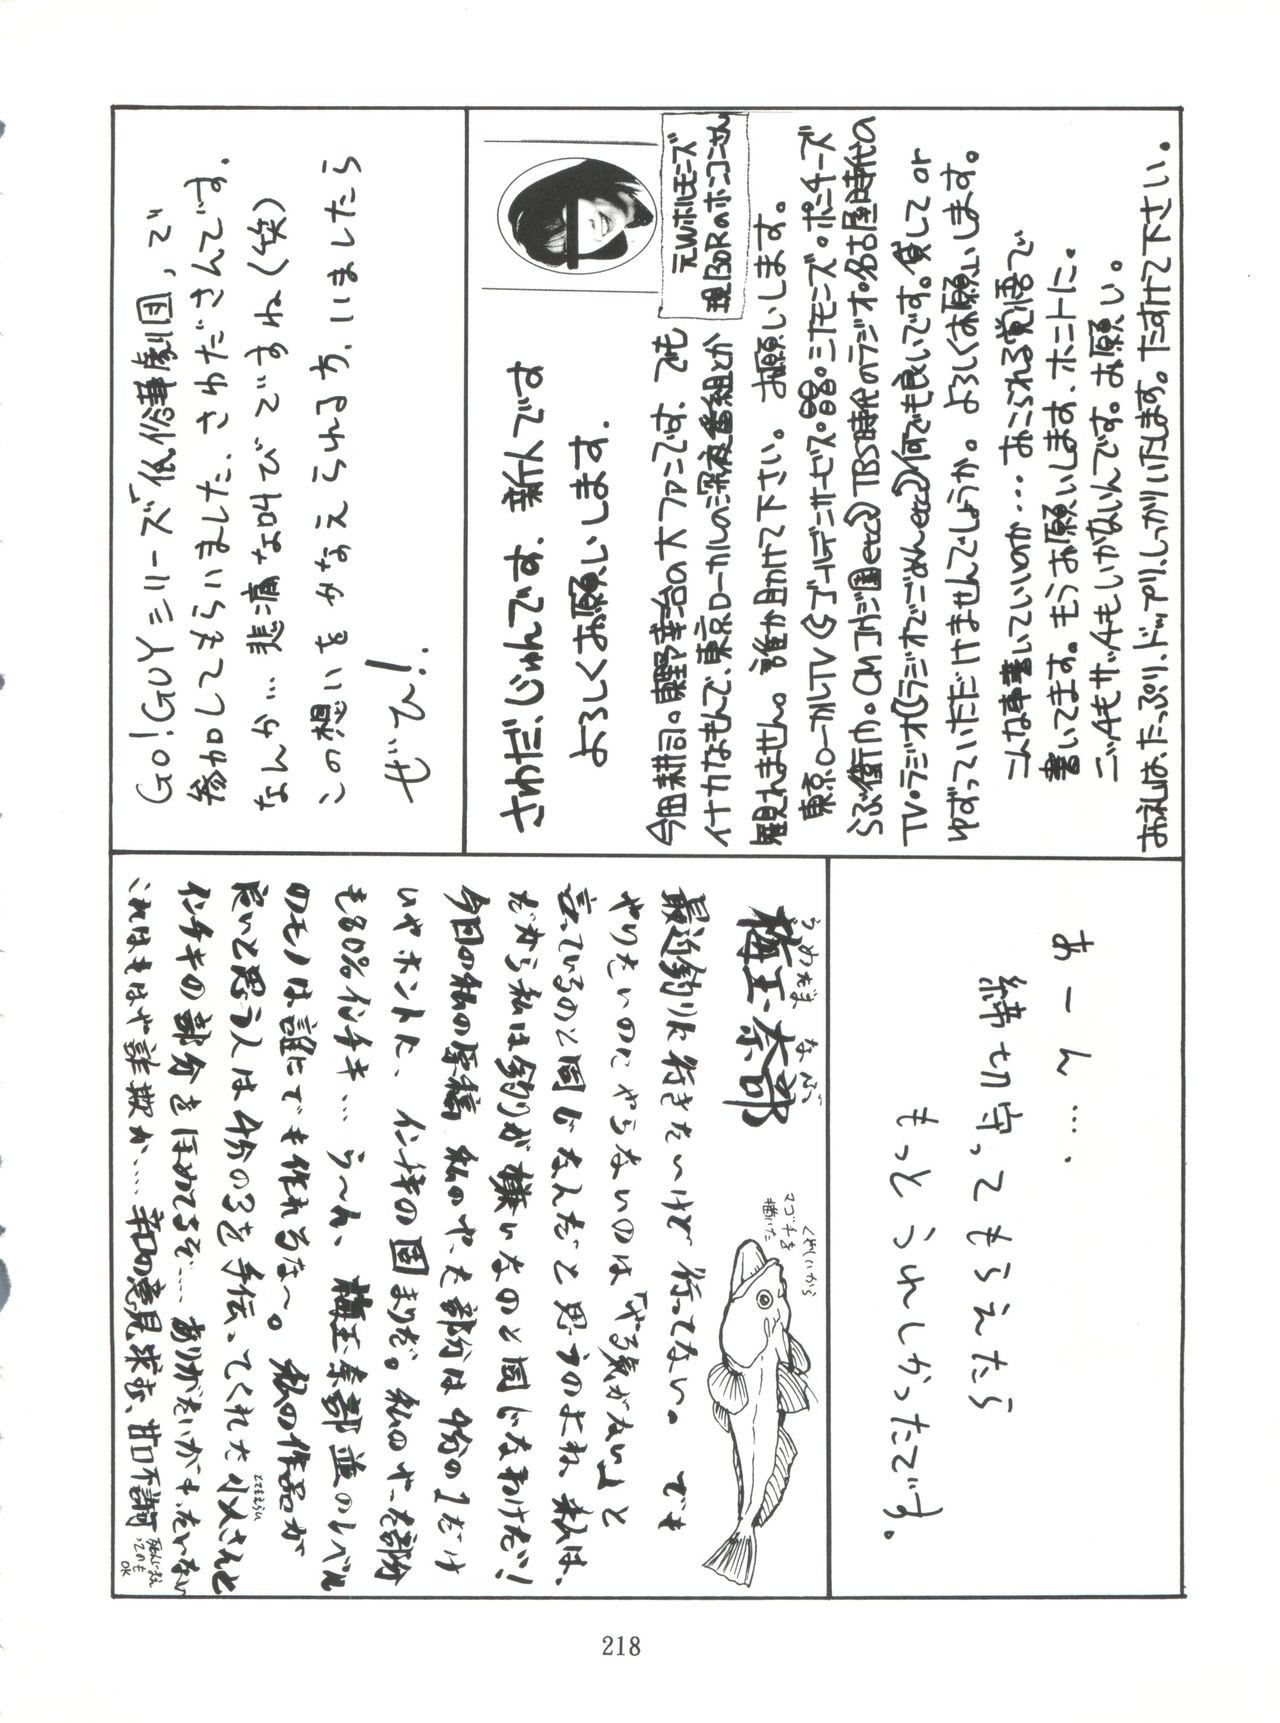 さわだ、じゅんです、新人です
よろしくお願いします.
元Wホルモンズ
現130Rのホンコンさん
今田耕司。東野幸治の大ファンです、でも
イナカなもんで、東京ローカルの深夜番組とか
見れません。誰か助けて下さい。お願いします。
らぶ街か。CMコウジ園etc) TBS時代のラジオ・名古屋時代の
TV・ラジオ(ラジオでごめんetc)何でも良いです。貸してor
ゆずっていただけませんでしょうか。よろしくお願いします。
こんな事書いていいのか…おこられる覚悟で
書いてます。もうお願いします、ホントに。
ニッチもサッチもいかないんです。お願い。
お礼は、たっぷり、ドップリ、しっかりいたします。たすけて下さい。
Go!GUYシリーズ「低俗華劇団」で
参加してもらいました、さわださんです.
なんか…悲痛な叫びですね(笑)
この想いをかなえられる方、いましたら
ぜひ!.
あーん….
締切守ってもらえたら
もっとうれしかったです。
うめだま なぶ
梅玉奈部
くやしいから
マゴチを
描いた
最近釣りに行きたいけど行ってない。でも
やりたいのにやらないのは「やる気がない」と
言っているのと同じなんだと思うのよね、私は、
だから私は釣りが嫌いなのと同じなわけだ!
今回の私の原稿 私のやった部分は4分の1だけ
いやホントに、インチキの固まりだ。私のやった部分
も80%インチキ…う〜ん、梅玉奈部並のレベル
のモノは誰にでも作れるな〜。私の作品が
良いと思う人は4分の3を手伝ってくれた小メさんと
とてもえらい
インチキの部分をほめてるぞ…ありがたいがもったいない
これはもはや詐欺か…辛口の意見求む、甘口不許可
OK
218